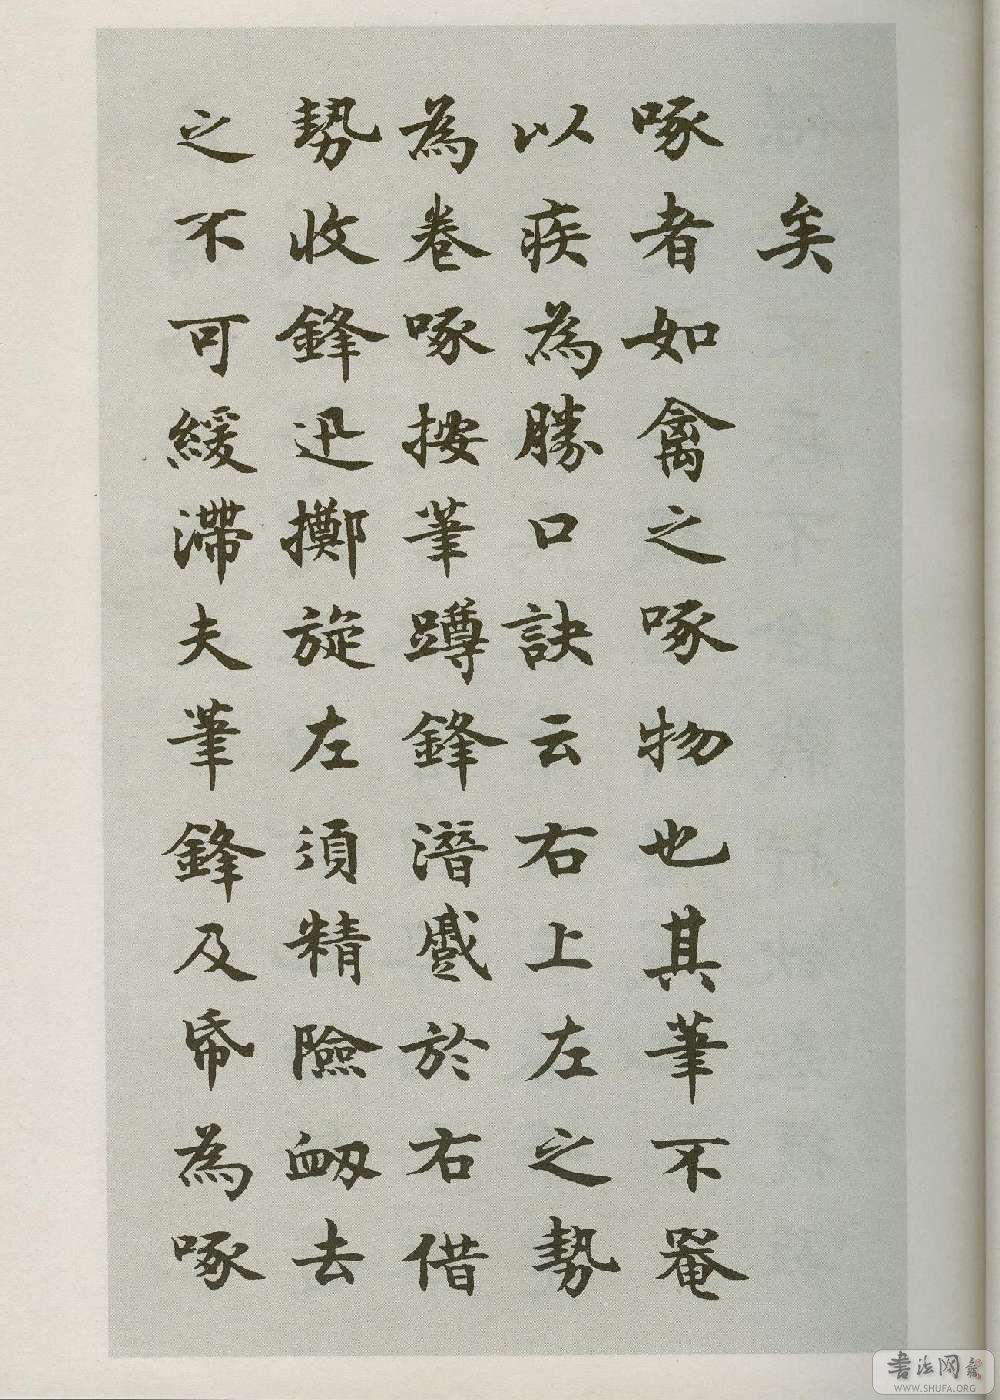 矣
啄者如禽之啄物也其筆不罨
以疾為勝口訣云右上左之勢
為卷啄按筆蹲鋒潛蹙於右借
勢收鋒迅擲旋左須精險衂去
之不可緩滯夫筆鋒及帋為啄
書法网
WWW.SHUFA.ORG